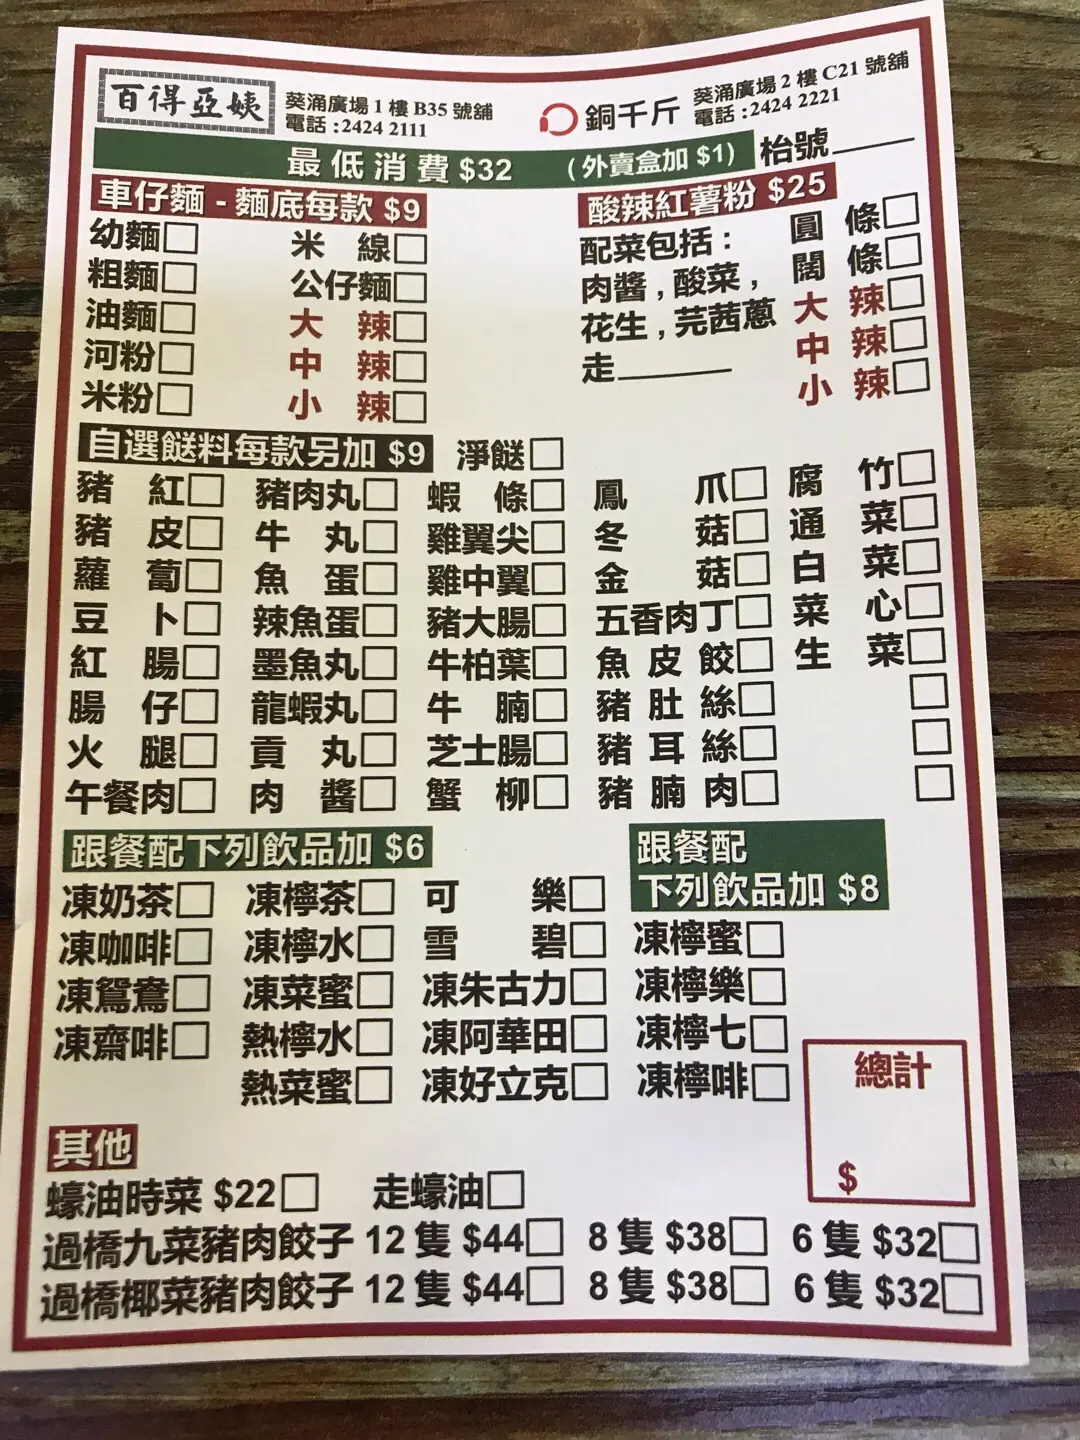 百得亞姨 葵涌廣場1樓B35號舖 電話:2424 2111
銅千斤 葵涌廣場2樓C21號舖 電話:2424 2221
最低消費 $32 (外賣盒加 $1) 枱號
車仔麵 - 麵底每款 $9
幼麵 米線
粗麵 公仔麵
油麵 大辣
河粉 中辣
米粉 小辣
酸辣紅薯粉 $25
配菜包括: 圓條
肉醬,酸菜, 闊條
花生,芫茜蔥 大辣
走 中辣
小辣
自選餸料每款另加 $9 淨餸
豬紅 豬肉丸 蝦條 鳳爪 腐竹
豬皮 牛丸 雞翼尖 冬菇 通菜
蘿蔔 魚蛋 雞中翼 金菇 白菜
豆卜 辣魚蛋 豬大腸 五香肉丁 菜心
紅腸 墨魚丸 牛柏葉 魚皮餃 生菜
腸仔 龍蝦丸 牛腩 豬肚絲
火腿 貢丸 芝士腸 豬耳絲
午餐肉 肉醬 蟹柳 豬腩肉
跟餐配下列飲品加 $6
凍奶茶 凍檸茶 可樂
凍咖啡 凍檸水 雪碧
凍鴛鴦 凍菜蜜 凍朱古力
凍齋啡 熱檸水 凍阿華田
熱菜蜜 凍好立克
跟餐配
下列飲品加 $8
凍檸蜜
凍檸樂
凍檸七
凍檸啡
總計
$
其他
蠔油時菜 $22 走蠔油
過橋九菜豬肉餃子 12隻 $44 8隻 $38 6隻 $32
過橋椰菜豬肉餃子 12隻 $44 8隻 $38 6隻 $32